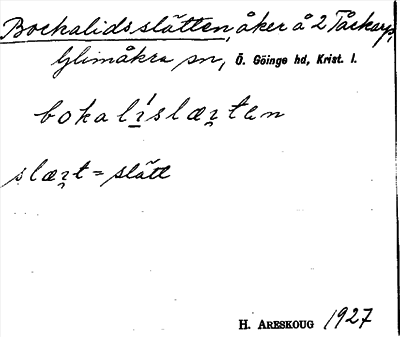 Bockalidsslätten, åker å 2 Tåskarp,
Glimåkra sn, Ö. Göinge hd, Krist. l.
bokalislæʒten
slæʒt = slätt
H. ARESKOUG 1927